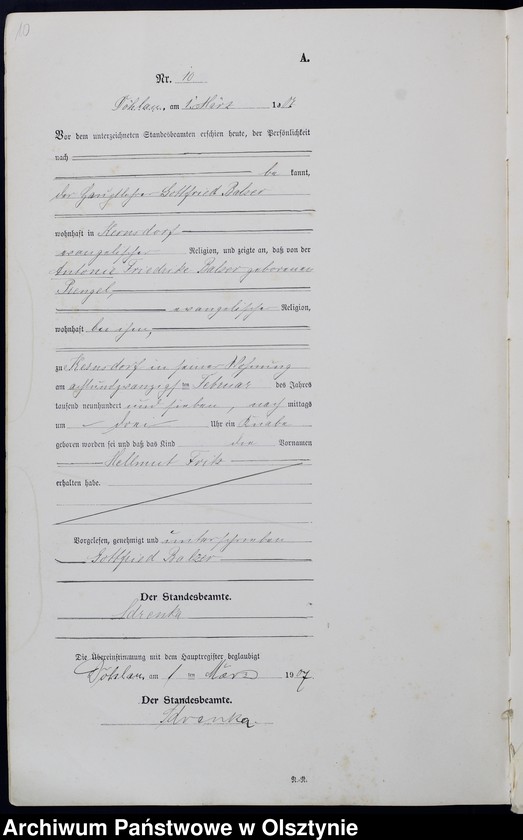 10
A.
Nr. 10
Döhlau, am 1. März 1907
Vor dem unterzeichneten Standesbeamten erschien heute, der Persönlichkeit
nach
be kannt,
der Gottfried Balzer
wohnhaft in Kernsdorf
evangelischer Religion, und zeigte an, daß von der
Antonie Friederike Balzer geborenen
Rengel,
evangelischer Religion,
wohnhaft bei ihm,
zu Kernsdorf in seiner Wohnung
am achtundzwanzigsten Februar des Jahres
tausend neunhundert und sieben, nach mittags
um drei Uhr ein Knabe
geboren worden sei und daß das Kind die Vornamen
Hellmut Fritz
erhalten habe.
Vorgelesen, genehmigt und unterschrieben
Gottfried Balzer
Der Standesbeamte.
Die Übereinstimmung mit dem Hauptregister beglaubigt
Döhlau, am 1 ten März 1907
Der Standesbeamte.
Archiwum Państwowe w Olsztynie